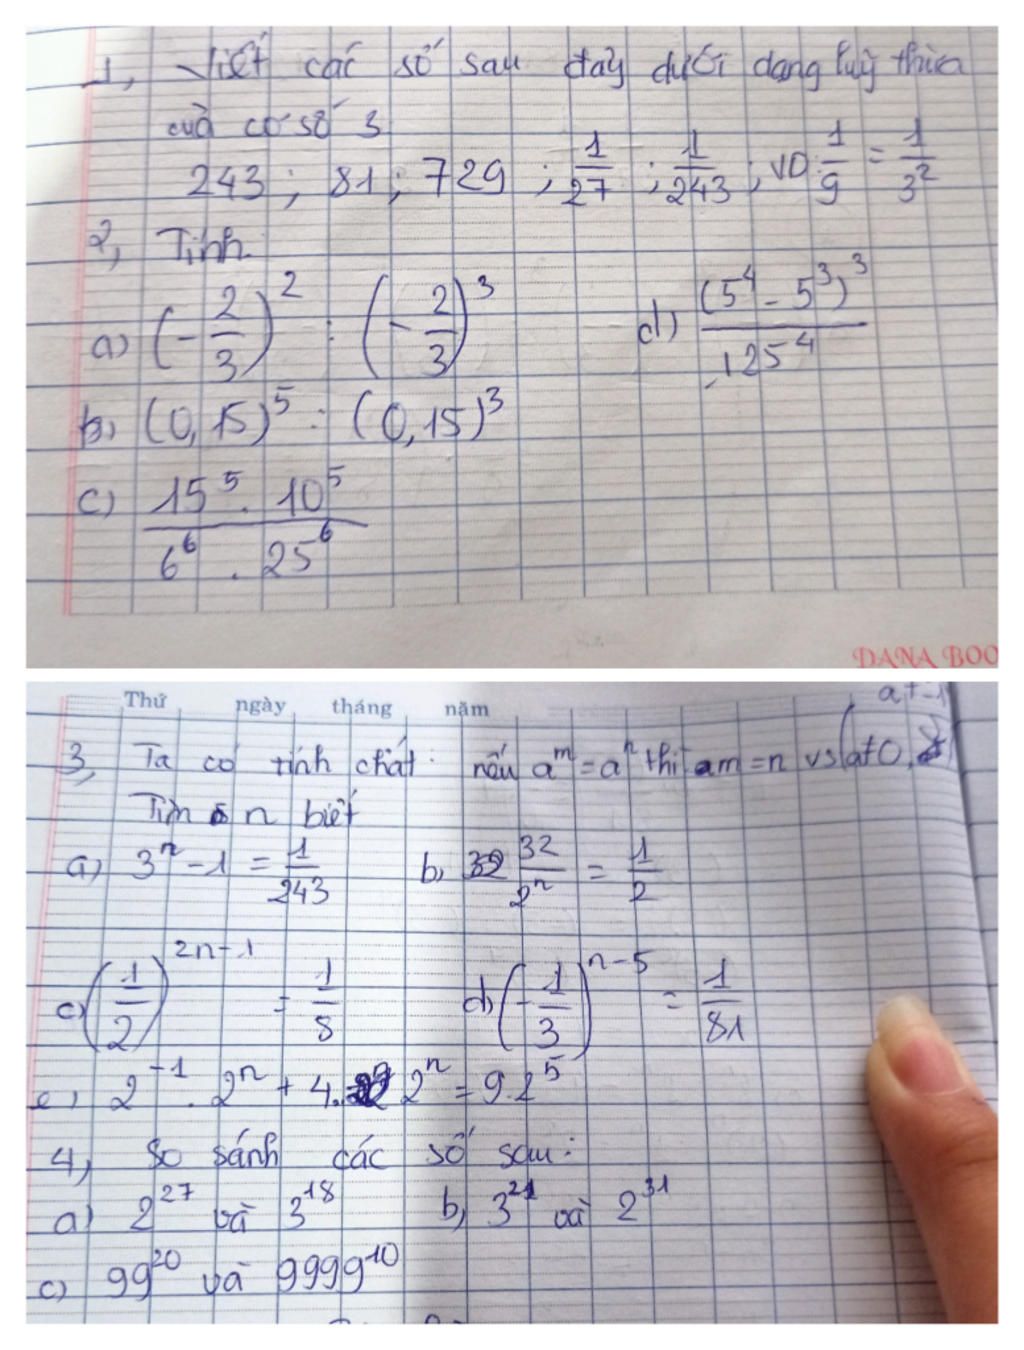 1, Viết các số sau đây dưới dạng luỹ thừa
của cơ số 3
243 ; 81 ; 729 ; 1/27 ; 1/243 ; VD: 1/9 = 1/3²
2, Tính
a) (-2/3)² : (-2/3)³
d) (5⁴ - 5³)³ / 125⁴
b) (0,15)⁵ : (0,15)³
c) 15⁵ . 10⁵ / 6⁶ . 25⁶
DANA BOO
Thứ ngày tháng năm
a≠-1
3, Ta có tính chất: nếu aᵐ = aⁿ thì m = n vs (a≠0,
Tìm n biết
a) 3ⁿ - 1 = 1/243 b, 32/2ⁿ = 1/2
c) (1/2)²ⁿ⁻¹ = 1/8 d) (-1/3)ⁿ⁻⁵ = 1/81
e, 2⁻¹ . 2ⁿ + 4. 2ⁿ = 9.2⁵
4, So sánh các số sau:
a) 2²⁷ và 3¹⁸ b, 3²¹ và 2³¹
c) 99²⁰ và 9999¹⁰